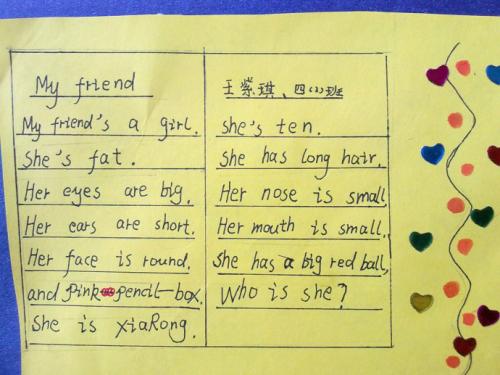 My friend
王紫琪、四(2)班
My friend's a girl.
She's ten.
She's fat.
She has long hair.
Her eyes are big.
Her nose is small
Her ears are short.
Her mouth is small.
Her face is round,
She has a big red ball,
and pink pencil box.
Who is she?
She is XiaRong.